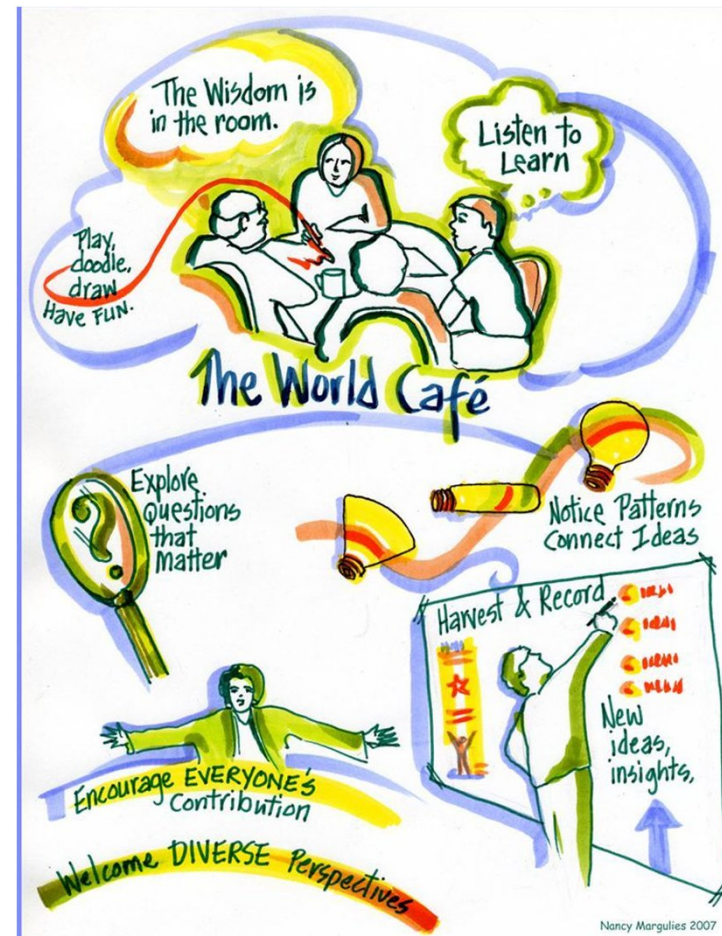 The Wisdom is
in the room.
Listen to
Learn
Play,
doodle,
draw
HAVE FUN.
The World Café
Explore
Questions
that
Matter
Notice Patterns
Connect Ideas
Harvest & Record
New
ideas,
insights,
Encourage EVERYONE'S
Contribution
Welcome DIVERSE Perspectives
Nancy Margulies 2007